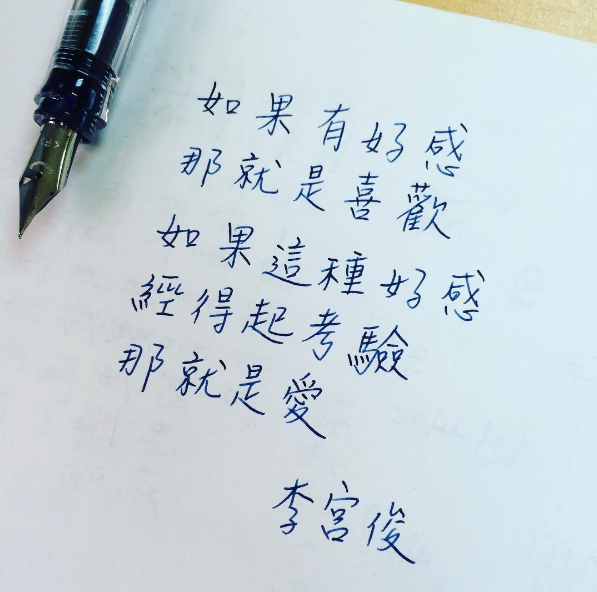 如果有好感
那就是喜歡
如果這種好感
經得起考驗
那就是愛
李宮俊